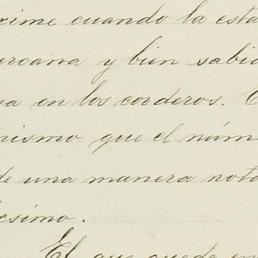 xime cuando la esta
ercana y bien sabid
na en los corderos.
nismo que el núm
de una manera nota
ésimo.
El que quede en